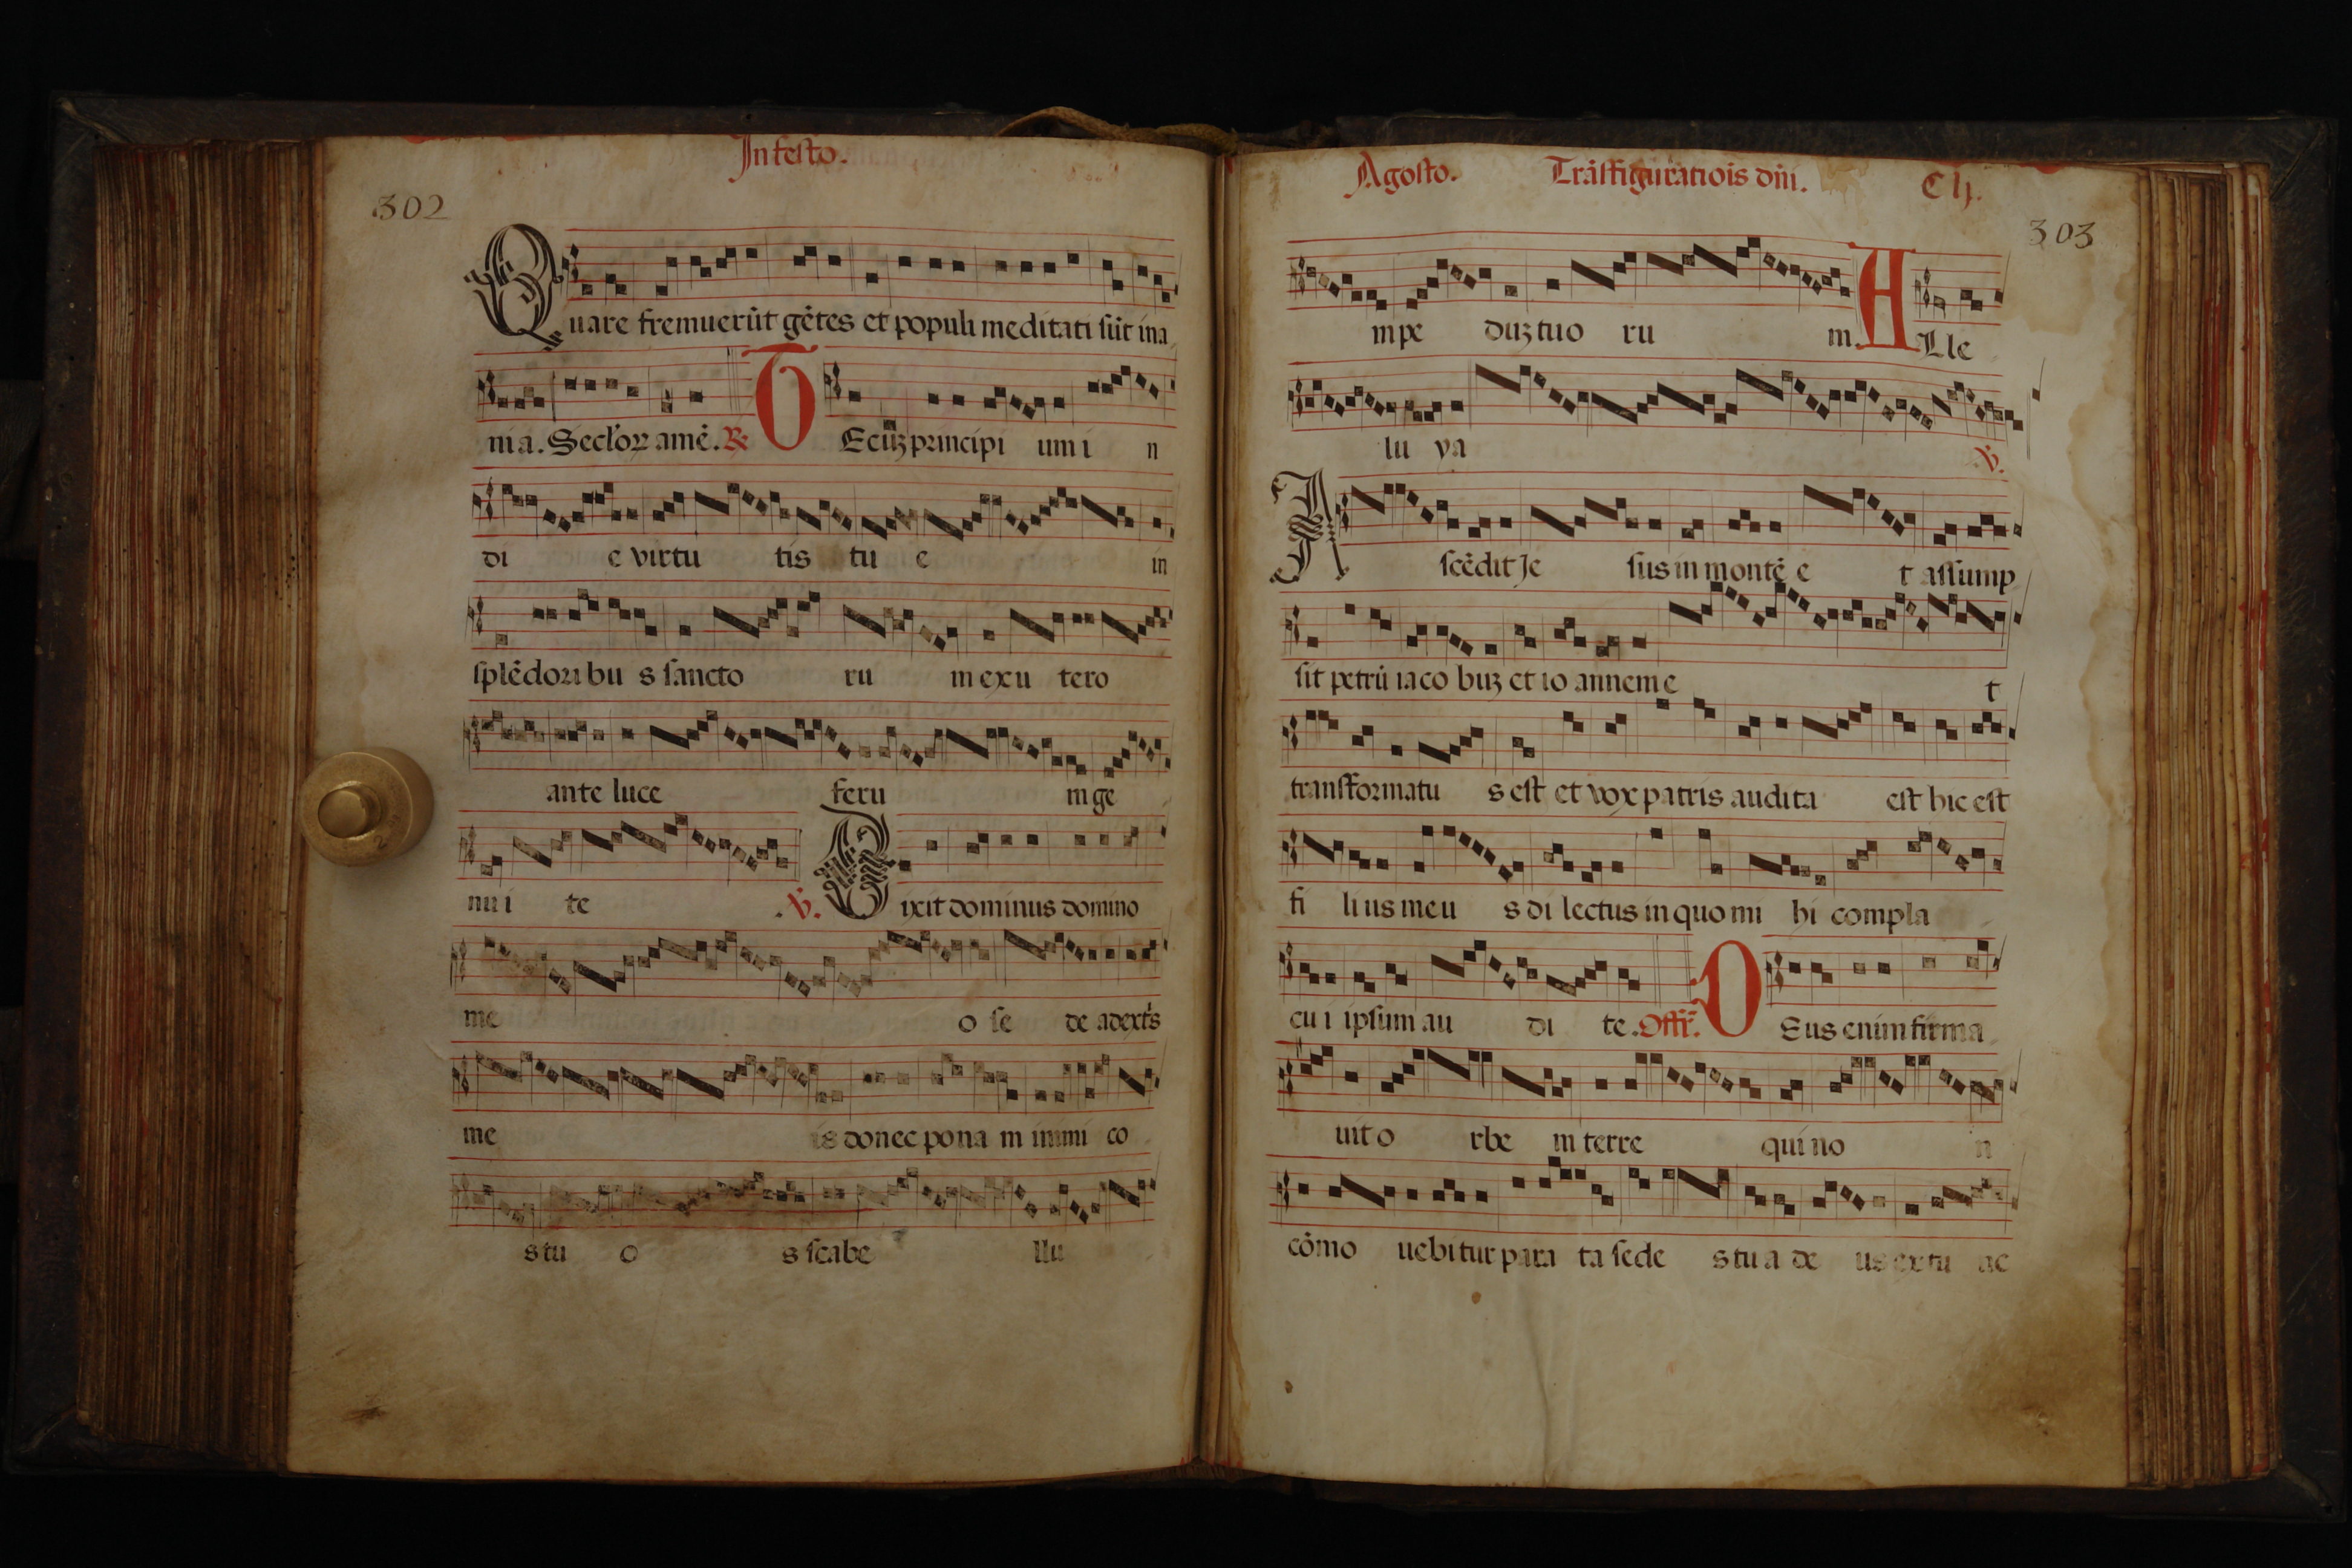 In festo.
302
Quare fremuerūt gētes et populi meditati sūt ina
nia. Seclor amē. R. T Ecūꝫ principi um i n
di e virtu tis tu e in
splēdoribu s sancto ru m ex u tero
ante luce feru m ge
nu i te .V. Dixit dominus domino
me o se de adextꝭs
me is donec pona m inimi co
s tu o s scabe llu
Agosto. Trāsfiguratiois dn̄i. Clj.
303
m pe duꝫ tuo ru m. A Lle
lu ya .V.
A scēdit Je sus in montē e t assump
sit petrū iaco buꝫ et io annem e t
transformatu s est et vox patris audita est hic est
fi li us meu s di lectus in quo mi hi compla
cu i ipsum au di te. Offr̄. D Eus enim firma
uit o rbe m terre qui no n
cōmo uebitur para ta sede s tu a de us ex tu ac